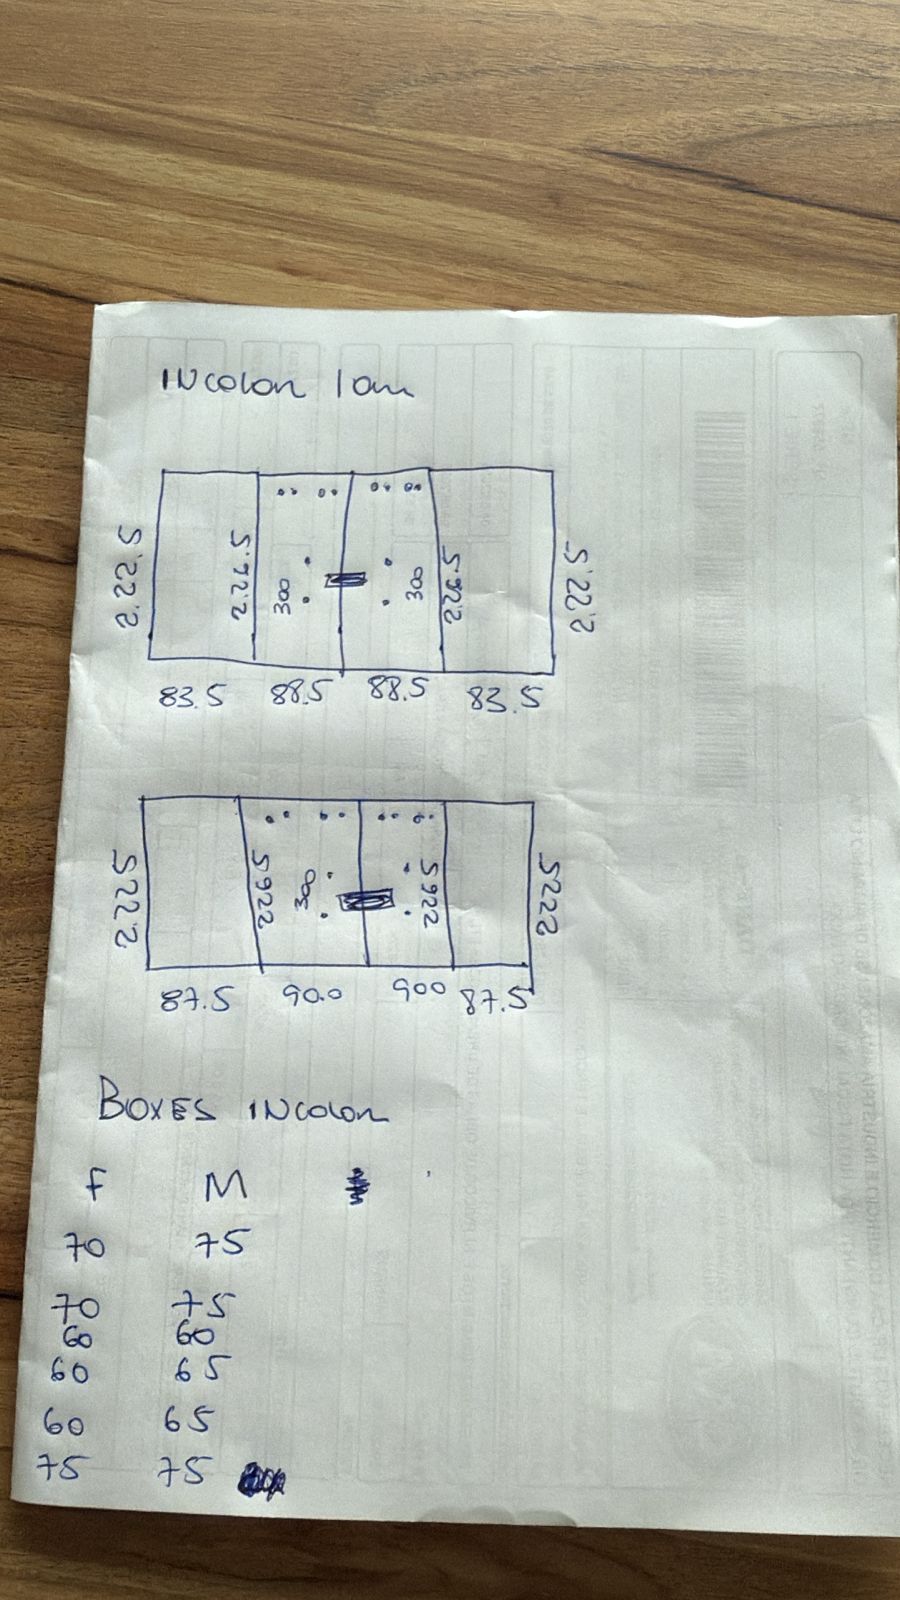 INcolor 10m
2.22.5
2.26.5
300
300
2.26.5
2.22.5
83.5 88.5 88.5 83.5
2225
2265
300
2265
2225
87.5 90.0 900 87.5
BOXES INcolor
F M
70 75
70 75
60 60
60 65
60 65
75 75